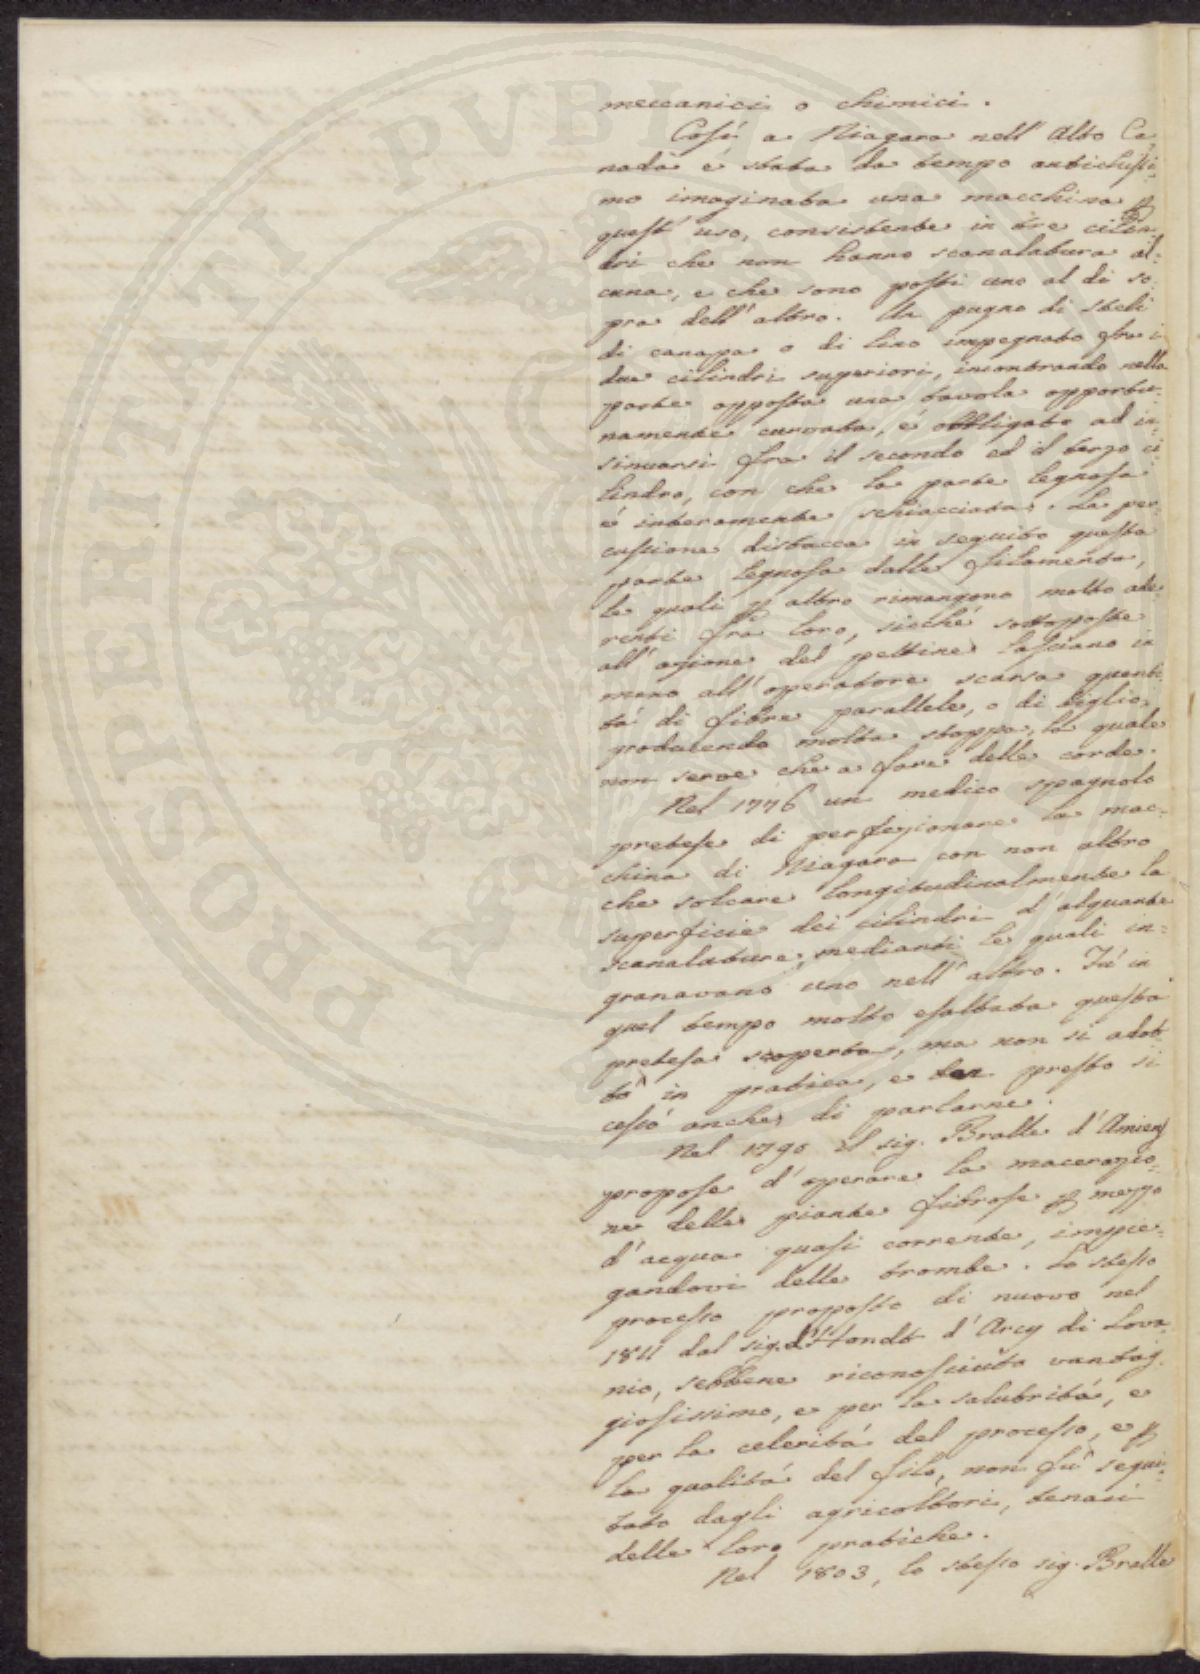 meccanici o chimici.
Così a Niagara nell' Alto Ca-
nadà è stata da tempo antichissi-
mo imaginata una macchina p
quest' uso, consistente in tre cilin-
dri che non hanno scanalatura al-
cuna, e che sono posti uno al di so-
pra dell' altro. Un pugno di steli
di canapa o di lino impegnato fra i
due cilindri superiori, incontrando nella
parte opposta una tavola opportu-
namente curvata, è obbligato ad in-
sinuarsi fra il secondo ed il terzo ci
lindro, con che la parte legnosa
è interamente schiacciata. La per-
cussione distacca in seguito questa
parte legnosa dalle filamenta,
le quali p altro rimangono molto ade-
renti frà loro, sicché sottoposte
all' azione del pettine lasciano in
mano all' operatore scarsa quanti-
tà di fibre parallele, o di tiglio,
producendo molta stoppa, la quale
non serve che a fare delle corde.
Nel 1776 un medico spagnolo
pretese di perfezionare la mac-
china di Niagara con non altro
che solcare longitudinalmente la
superficie dei cilindri d' alquante
scanalature, medianti le quali in-
granavano uno nell' altro. Fù in
quel tempo molto esaltata questa
pretesa scoperta, ma non si adot
tò in pratica, e ben presto si
cessò anche di parlarne.
Nel 1790 il sig. Bralle d' Amiens
propose d' operare la macerazio-
ne delle piante fibrose p mezzo
d' acqua quasi corrente, impie-
gandovi delle trombe. Lo stesso
processo proposto di nuovo nel
1811 dal sig. d' Hondt d' Arcy di Lova-
nio, sebbene riconosciuto vantag-
giosissimo, e per la salubrità, e
per la celerità del processo, e p
la qualità del filo, non fù segui-
tato dagli agricoltori, tenaci
delle loro pratiche.
Nel 1803, lo stesso sig. Bralle
PROSPERITATI PVBLICAE